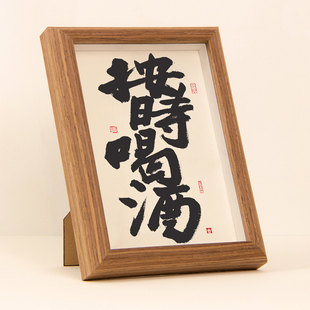 按時喝酒